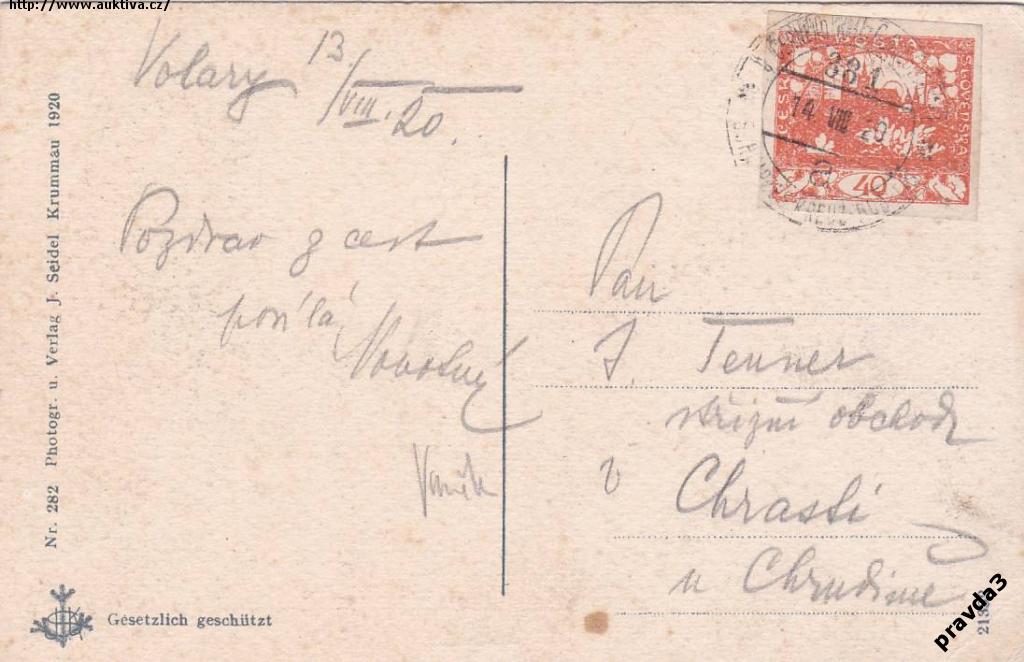 http://www.auktiva.cz/
Volary 13/VIII.20.
Pozdrav z cest
posílá
Novotný
Vaněk
Nr. 282 Photogr. u. Verlag J. Seidel Krummau 1920
Gesetzlich geschützt
381
14 VIII 20
a
40
Pan
J. Tenner
střižní obchod
v Chrasti
u Chrudimě
pravda3